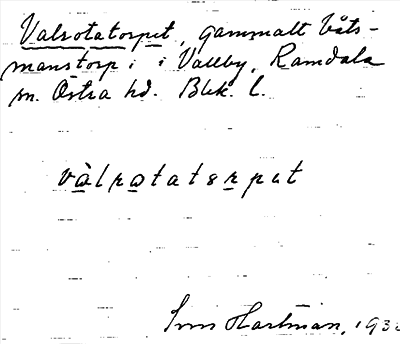 Valrotatorpet, gammalt båts-
manstorp i Vallby, Ramdala
sn. Östra hd. Blek. l.
vàlrotatorput
Hartman, 193